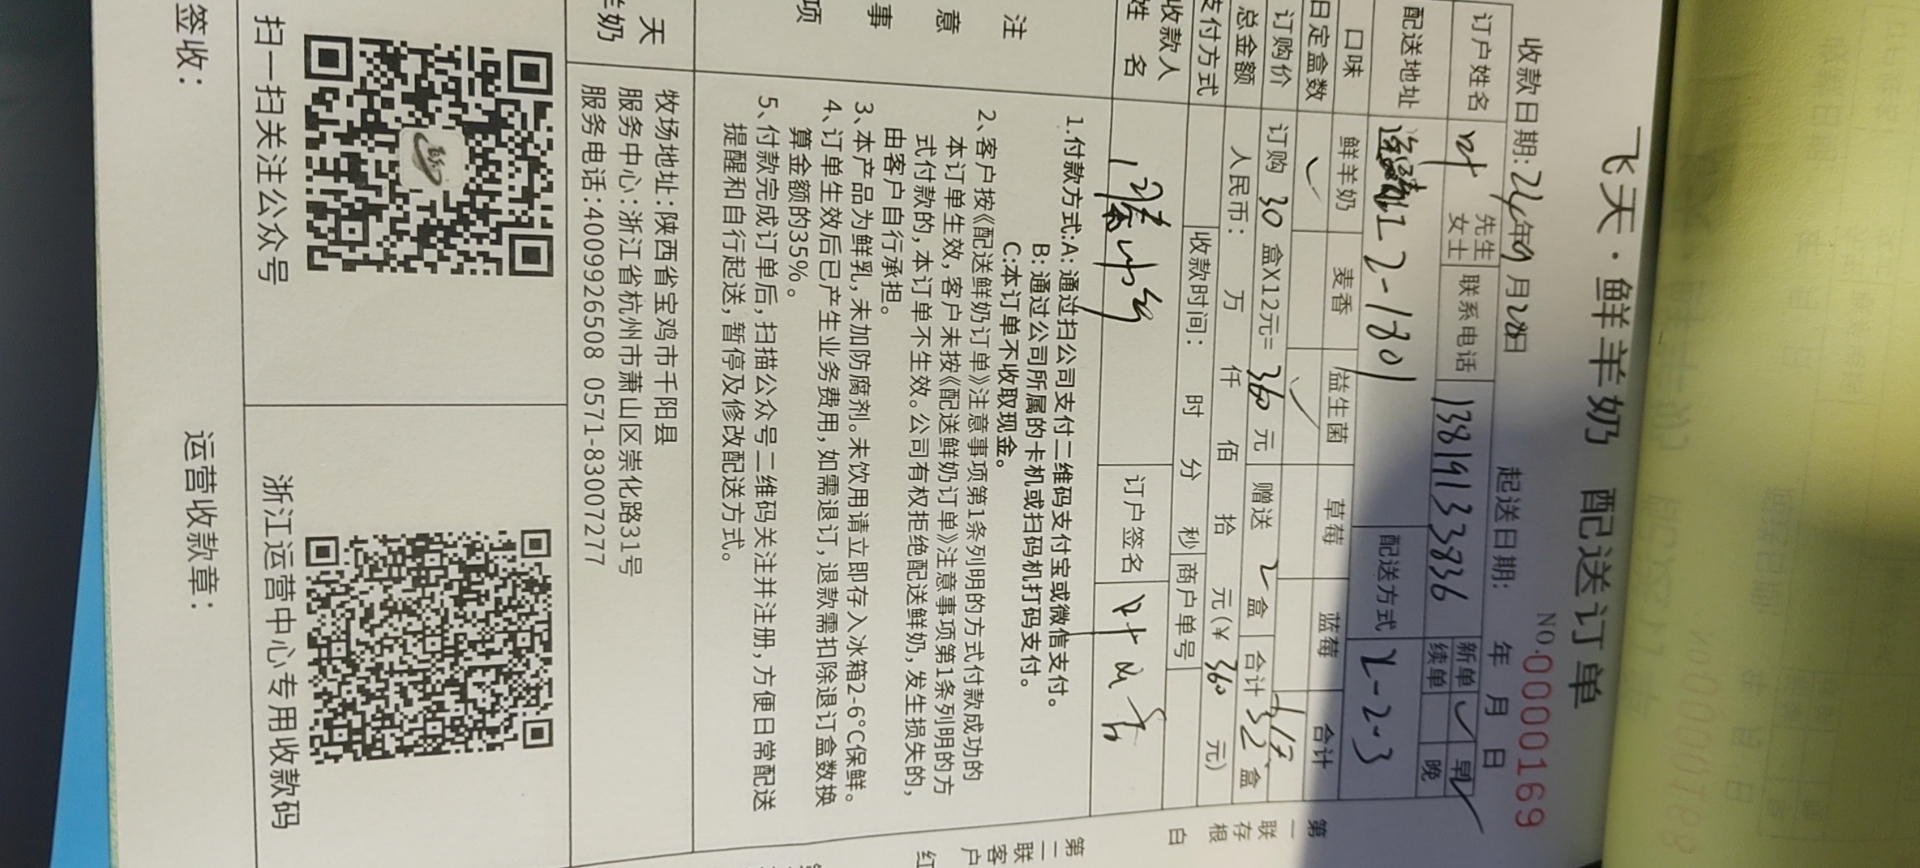 飞天·鲜羊奶 配送订单
NO.0000169
收款日期: 24年9月28日 起送日期: 年 月 日
订户姓名 叶 先生 女士 联系电话 13819133836 新单 ✓ 续单 早 ✓ 晚
配送地址 2-1801 配送方式 2-2-3
口味 鲜羊奶 麦香 益生菌 草莓 蓝莓 合计
日定盒数 ✓ ✓
订购价 订购 30 盒X12元= 360 元 赠送 2 盒 合计 32 盒
总金额 人民币: 万 仟 佰 拾 元(¥ 360 元)
支付方式 收款时间: 时 分 秒 商户单号
收款人姓名 订户签名
注意事项
1.付款方式:A: 通过扫公司支付二维码支付宝或微信支付。
B: 通过公司所属的卡机或扫码机打码支付。
C:本订单不收取现金。
2、客户按《配送鲜奶订单》注意事项第1条列明的方式付款成功的
本订单生效,客户未按《配送鲜奶订单》注意事项第1条列明的方
式付款的,本订单不生效。公司有权拒绝配送鲜奶,发生损失的,
由客户自行承担。
3、本产品为鲜乳,未加防腐剂。未饮用请立即存入冰箱2-6°C保鲜。
4、订单生效后已产生业务费用,如需退订,退款需扣除退订盒数换
算金额的35%。
5、付款完成订单后,扫描公众号二维码关注并注册,方便日常配送
提醒和自行起送,暂停及修改配送方式。
天
羊奶
牧场地址:陕西省宝鸡市千阳县
服务中心:浙江省杭州市萧山区崇化路31号
服务电话:4009926508 0571-83007277
扫一扫关注公众号
浙江运营中心专用收款码
签收: 运营收款章:
第一联存根 白
第二联客户 红